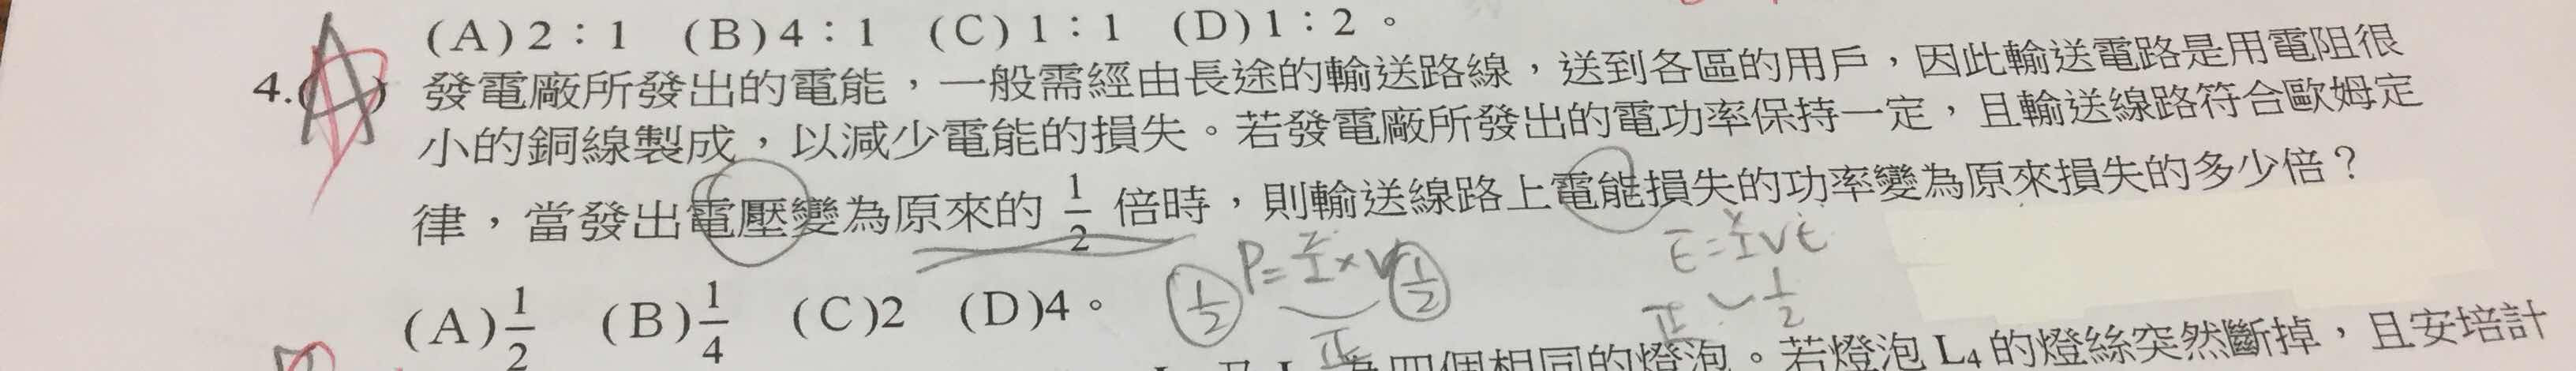 (A)2：1 (B)4：1 (C)1：1 (D)1：2。
4.(A) 發電廠所發出的電能，一般需經由長途的輸送路線，送到各區的用戶，因此輸送電路是用電阻很
小的銅線製成，以減少電能的損失。若發電廠所發出的電功率保持一定，且輸送線路符合歐姆定
律，當發出電壓變為原來的 1/2 倍時，則輸送線路上電能損失的功率變為原來損失的多少倍？
E=IVt
P=I×V 1/2
1/2
正 1/2
正
(A)1/2 (B)1/4 (C)2 (D)4。
四個相同的燈泡。若燈泡 L₄ 的燈絲突然斷掉，且安培計